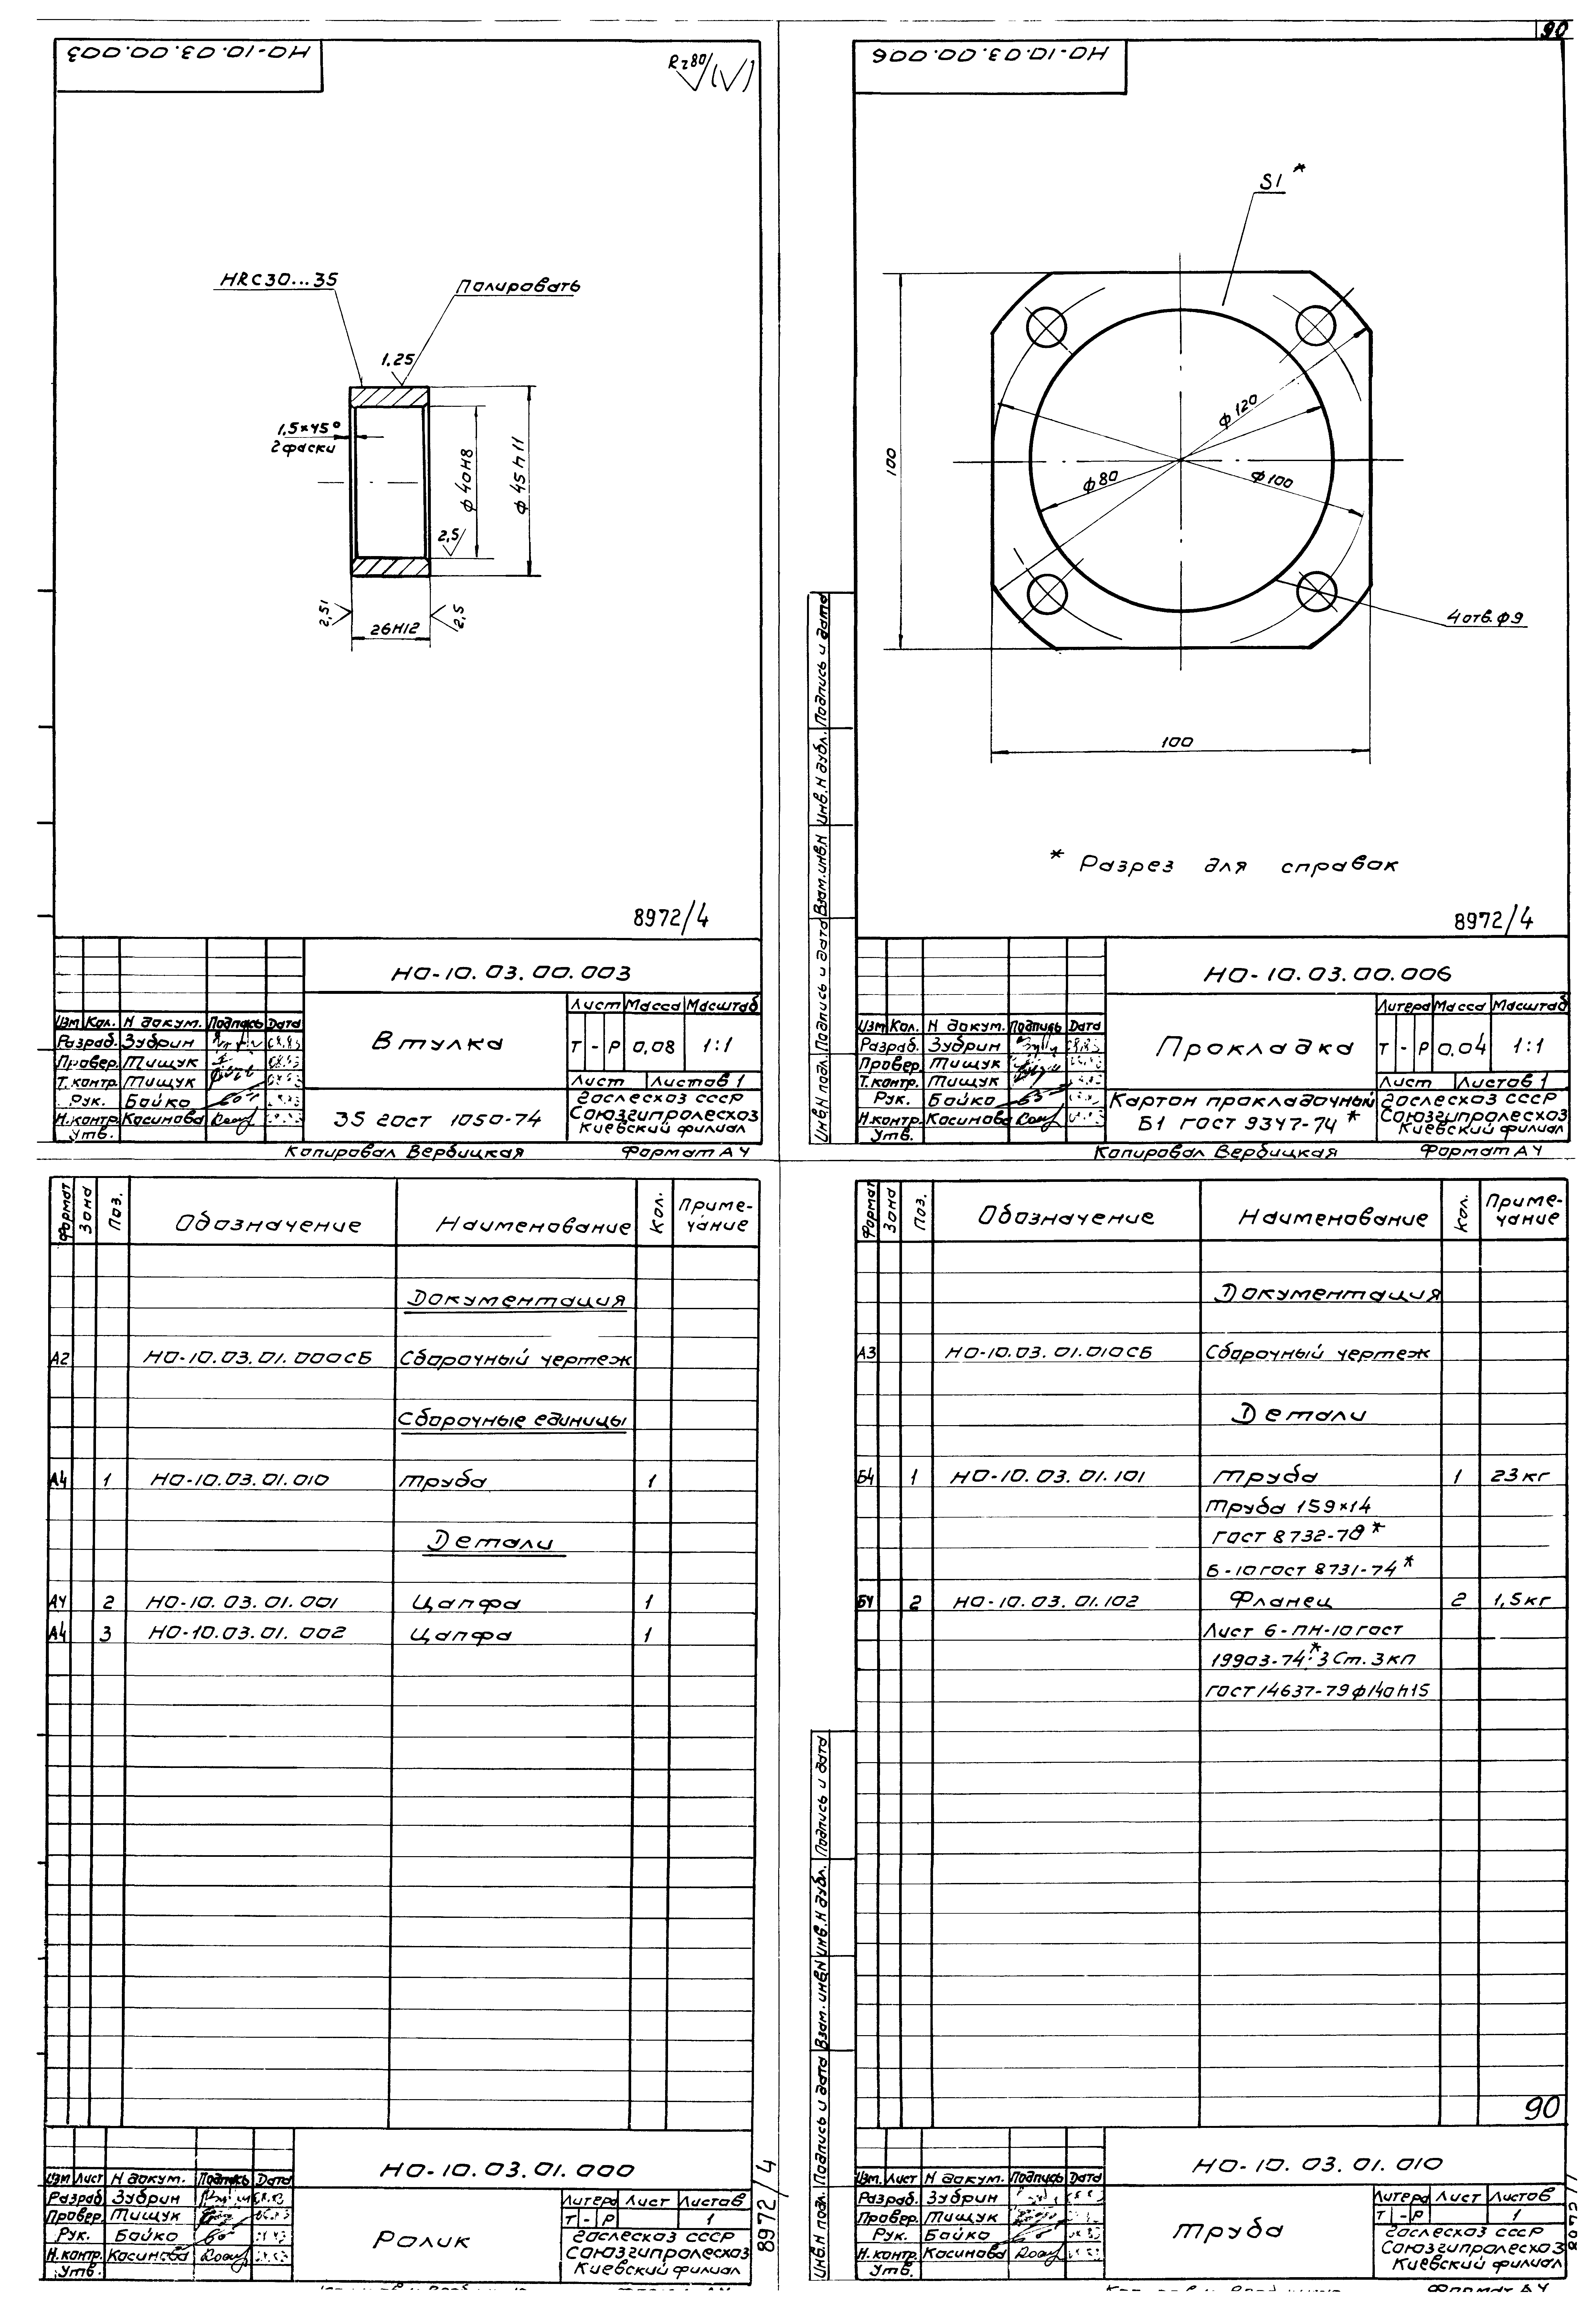 90
НО-10.03.00.003
Rz80 (√)
HRC30...35
Полировать
1,25
1,5×45°
2 фаски
ϕ40H8
ϕ45h11
2,5
2,5
26H12
8972/4
НО-10.03.00.003
Изм Кол. N докум. Подпись Дата
Разраб. Зубрин
Провер. Тищук
Т.контр. Тищук
Рук. Бойко
Н.контр. Косинова
Утв.
Втулка
Лист Масса Масштаб
Т - Р 0,08 1:1
Лист Листов 1
35 гост 1050-74
Гослесхоз СССР
Союзгипролесхоз
Киевский филиал
Копировал Вербицкая Формат А4
НО-10.03.00.006
S1 *
100
ϕ120
ϕ80
ϕ100
4отв.ϕ9
100
* Разрез для справок
8972/4
Инв.N подл. Подпись и дата Взам.инв.N Инв.N дубл. Подпись и дата
НО-10.03.00.006
Изм Кол. N докум. Подпись Дата
Разраб. Зубрин
Провер. Тищук
Т.контр. Тищук
Рук. Бойко
Н.контр. Косинова
Утв.
Прокладка
Литера Масса Масштаб
Т - Р 0,04 1:1
Лист Листов 1
Картон прокладочный
Б1 ГОСТ 9347-74 *
Гослесхоз СССР
Союзгипролесхоз
Киевский филиал
Копировал Вербицкая Формат А4
Формат Зона Поз. Обозначение Наименование Кол. Приме-
чание
Документация
А2 НО-10.03.01.000СБ Сборочный чертеж
Сборочные единицы
А4 1 НО-10.03.01.010 Труба 1
Детали
А4 2 НО-10.03.01.001 Цапфа 1
А4 3 НО-10.03.01.002 Цапфа 1
НО-10.03.01.000
Изм Лист N докум. Подпись Дата
Разраб. Зубрин
Провер. Тищук
Рук. Бойко
Н.контр. Косинова
Утв.
Ролик
Литера Лист Листов
Т - Р 1
Гослесхоз СССР
Союзгипролесхоз
Киевский филиал
8972/4
Формат Зона Поз. Обозначение Наименование Кол. Приме-
чание
Документация
А3 НО-10.03.01.010СБ Сборочный чертеж
Детали
Б4 1 НО-10.03.01.101 Труба 1 23кг
Труба 159×14
ГОСТ 8732-78*
Б-10 гост 8731-74*
Б4 2 НО-10.03.01.102 Фланец 2 1,5кг
Лист 6-ПН-10 гост
19903-74*. 3 Ст.3кп
ГОСТ 14637-79 ϕ140h15
90
Инв.N подл. Подпись и дата Взам.инв.N Инв.N дубл. Подпись и дата
НО-10.03.01.010
Изм. Лист N докум. Подпись Дата
Разраб. Зубрин
Провер. Тищук
Рук. Бойко
Н.контр. Косинова
Утв.
Труба
Литера Лист Листов
Т - Р 1
Гослесхоз СССР
Союзгипролесхоз
Киевский филиал
Формат А4